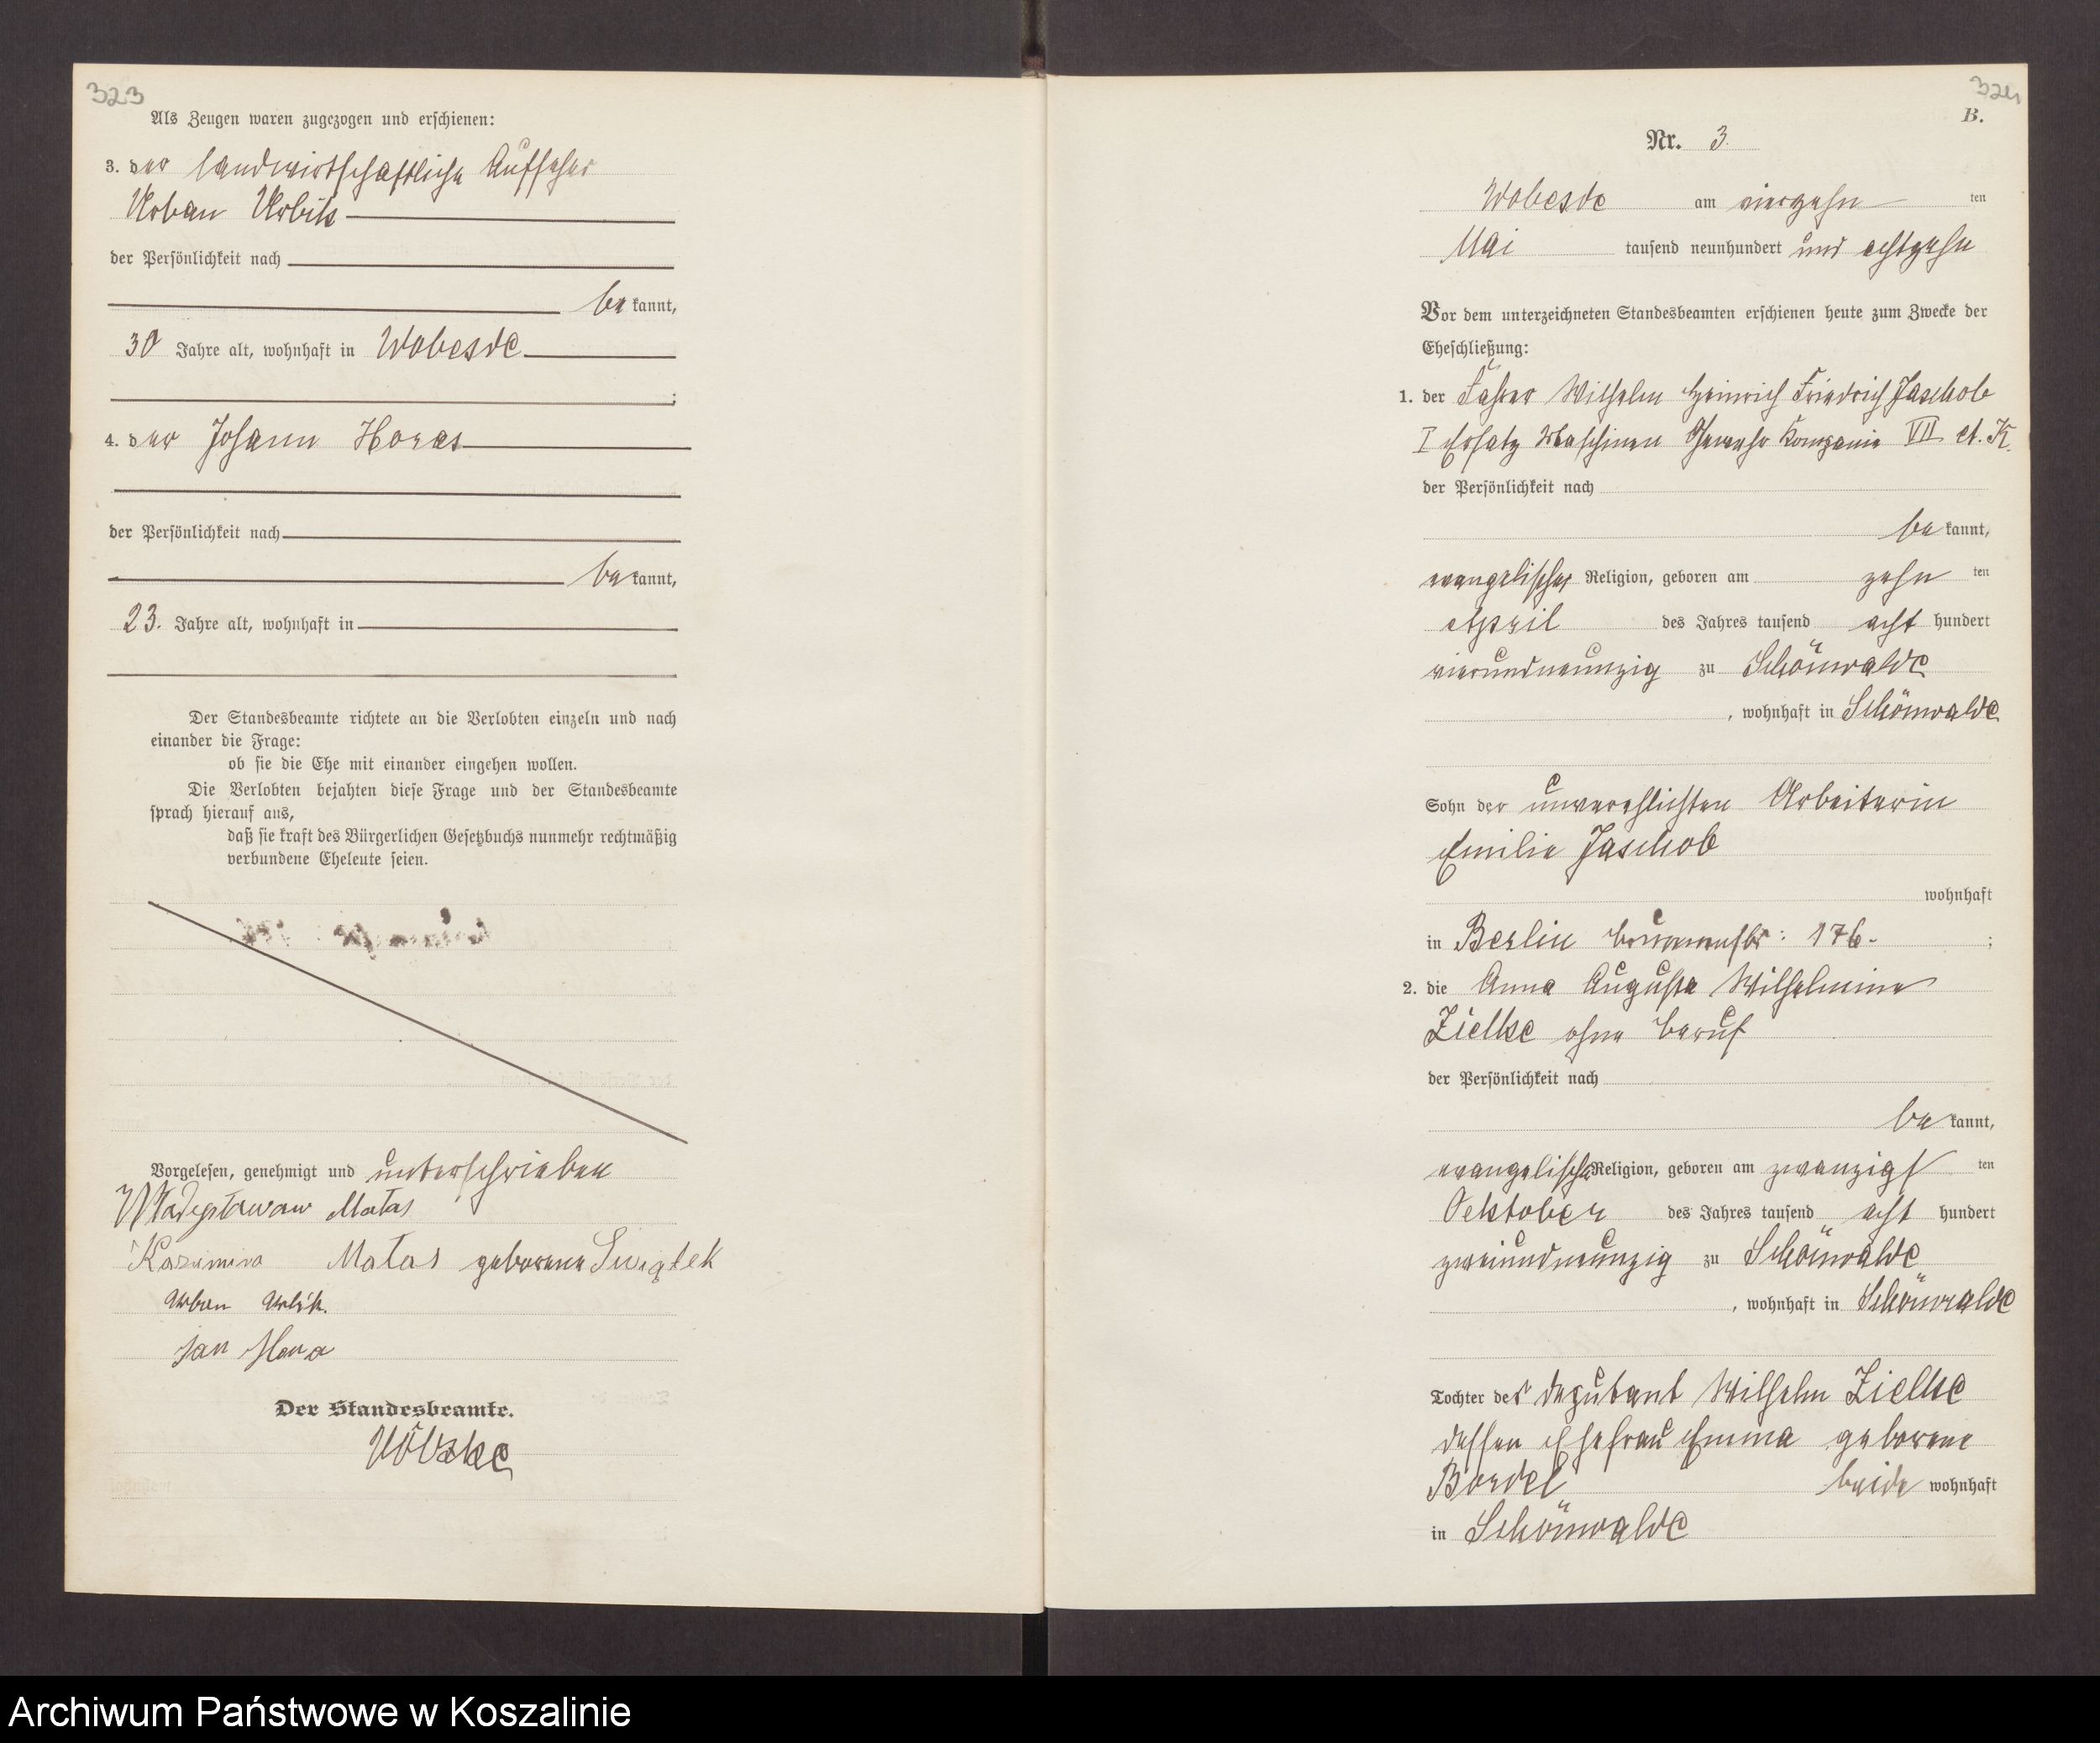 323
Als Zeugen waren zugezogen und erschienen:
3. der landwirtschaftliche Aufseher
Urban Urbik
der Persönlichkeit nach
be kannt,
30 Jahre alt, wohnhaft in Wobesde
4. der Johann Horas
der Persönlichkeit nach
be kannt,
23. Jahre alt, wohnhaft in
Der Standesbeamte richtete an die Verlobten einzeln und nach
einander die Frage:
ob sie die Ehe mit einander eingehen wollen.
Die Verlobten bejahten diese Frage und der Standesbeamte
sprach hierauf aus,
daß sie kraft des Bürgerlichen Gesetzbuchs nunmehr rechtmäßig
verbundene Eheleute seien.
Vorgelesen, genehmigt und unterschrieben
Matas
Kazimira Matas geborene Swiątek
Urban Urbik.
Jan
Der Standesbeamte.
324
B.
Nr. 3.
Wobesde am vierzehn ten
Mai tausend neunhundert und achtzehn
Vor dem unterzeichneten Standesbeamten erschienen heute zum Zwecke der
Eheschließung:
1. der Fahrer Wilhelm Heinrich Friedrich Jaschob
I Ersatz Maschinen Gewehr Kompanie VII A. K.
der Persönlichkeit nach
be kannt,
evangelischer Religion, geboren am zehn ten
April des Jahres tausend acht hundert
vierundneunzig zu Schönwalde
, wohnhaft in Schönwalde
Sohn der unverehlichten Arbeiterin
Emilie Jaschob
wohnhaft
in Berlin Brunnenstr: 176. ;
2. die Anna Auguste Wilhelmine
Zielke ohne Beruf
der Persönlichkeit nach
be kannt,
evangelischer Religion, geboren am zwanzigs ten
Oektober des Jahres tausend acht hundert
zweiundneunzig zu Schönwalde
, wohnhaft in Schönwalde
Tochter des Deputant Wilhelm Zielke
dessen Ehefrau Emma geborene
Bordel beide wohnhaft
in Schönwalde
Archiwum Państwowe w Koszalinie